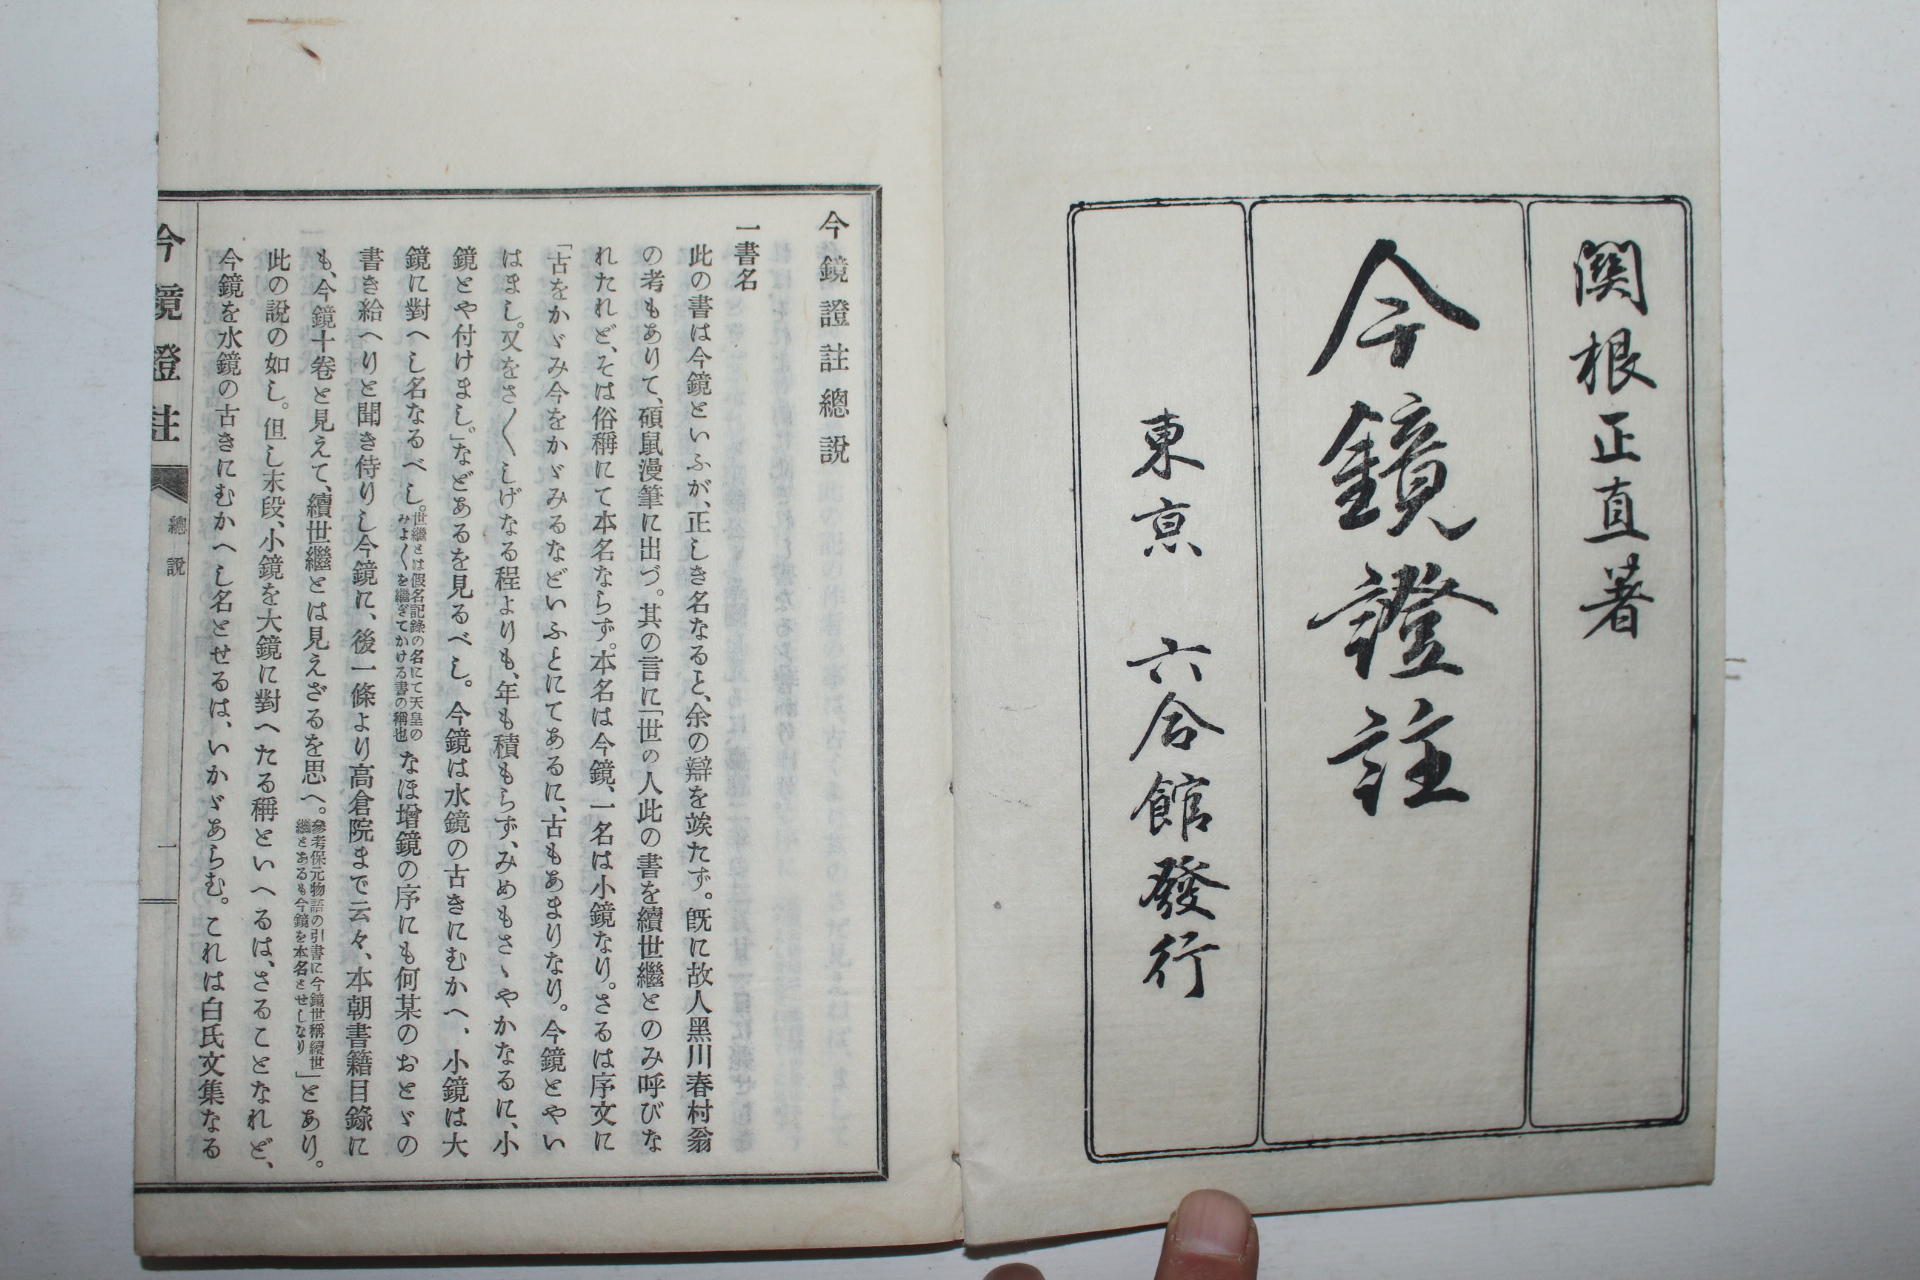 関根正直著
今鏡證註
東京 六合館發行
今鏡證註總説
一書名
此の書は今鏡といふが、正しき名なること、余の辯を竢たず。既に故人黑川春村翁
の考もありて、碩鼠漫筆に出づ。其の言に「世の人此の書を續世繼とのみ呼びな
れたれど、そは俗稱にて本名ならず。本名は今鏡、一名は小鏡なり。さるは序文に
「古をかゞみ今をかゞみるなどいふことにてあるに、古もあまりなり。今鏡とやい
はまし。又をさ〳〵しげなる程よりも、年も積もらず、みめもさゝやかなるに、小
鏡とや付けまし。」などあるを見るべし。今鏡は水鏡の古きにむかへ、小鏡は大
鏡に對へし名なるべし。世繼とは假名記錄の名にて天皇のみよ〳〵を繼ぎてかける書の稱也なほ增鏡の序にも何某のおとゞの
書き給へりと聞き侍りし今鏡に、後一條より高倉院まで云々、本朝書籍目錄に
も、今鏡十卷と見えて、續世繼とは見えざるを思へ。參考保元物語の引書に今鏡世稱續世繼とあるも今鏡を本名とせしなり」とあり。
此の説の如し。但し末段、小鏡を大鏡に對へたる稱といへるは、さることなれど、
今鏡を水鏡の古きにむかへし名とせるは、いかゞあらむ。これは白氏文集なる
今鏡證註
總説
一